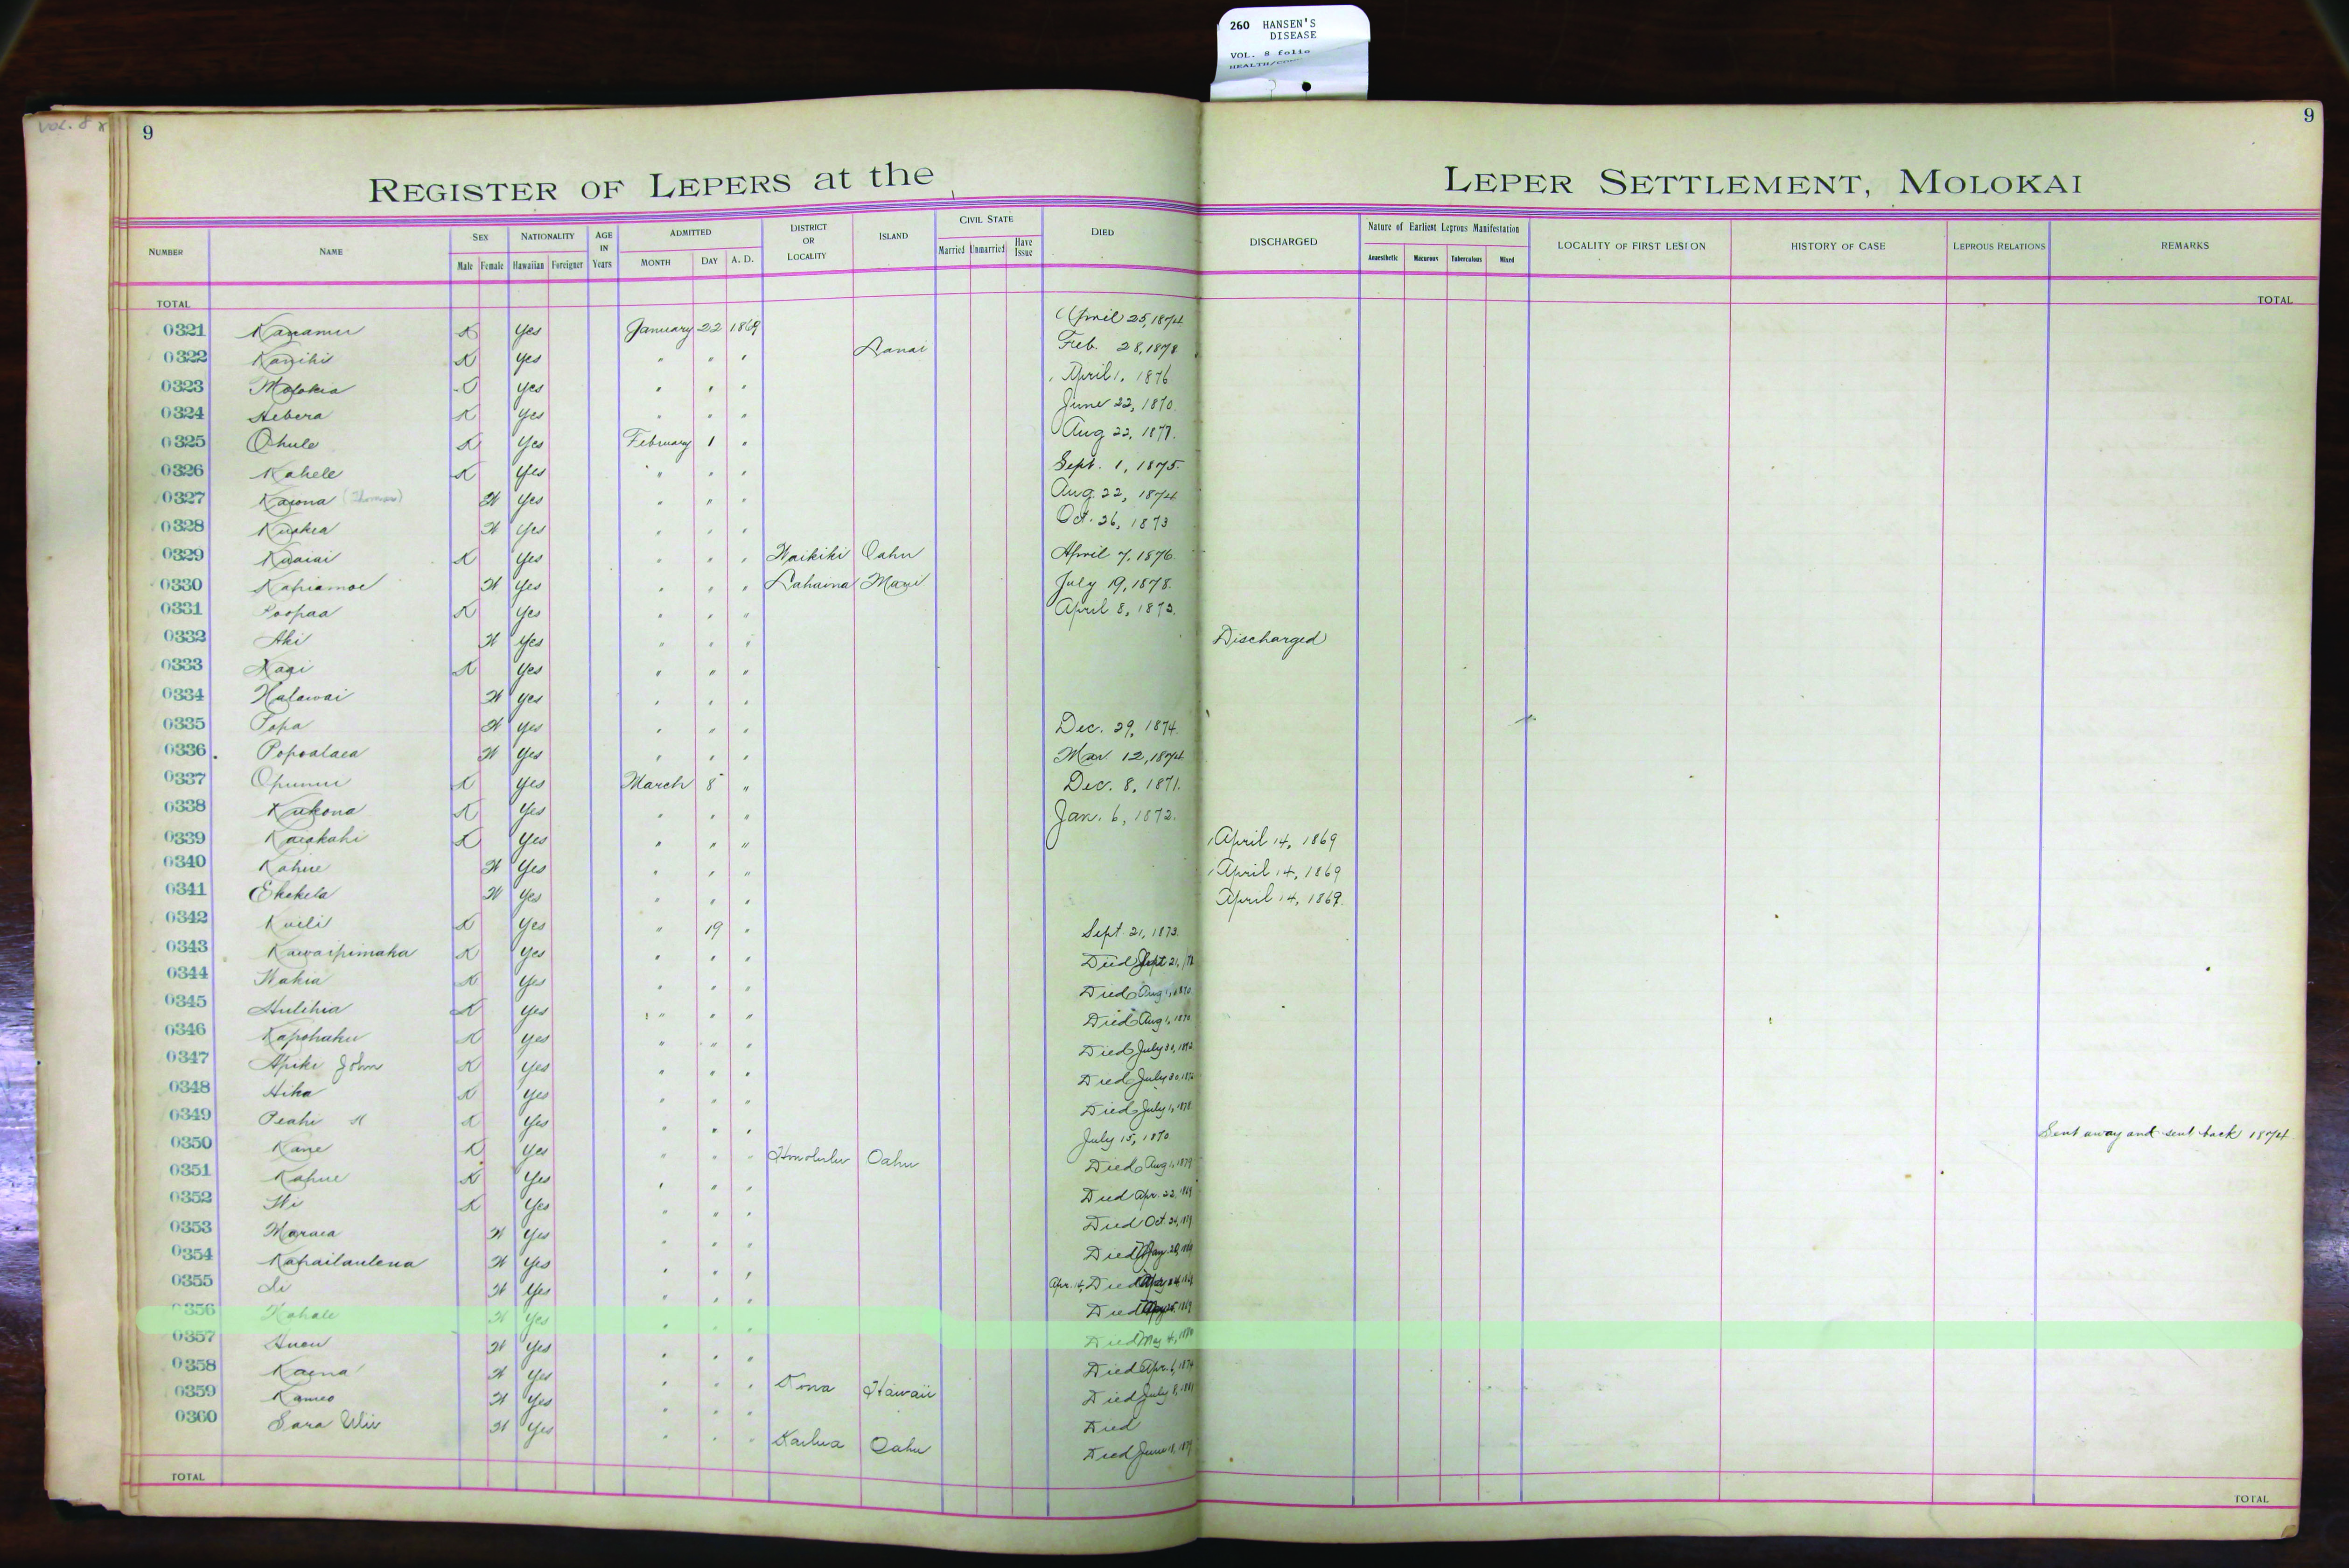 260 HANSEN'S
DISEASE
VOL. 8 folio
VOL. 8
9
9
REGISTER OF LEPERS at the LEPER SETTLEMENT, MOLOKAI
NUMBER NAME SEX NATIONALITY AGE IN Years ADMITTED DISTRICT OR LOCALITY ISLAND CIVIL STATE DIED DISCHARGED Nature of Earliest Leprous Manifestation LOCALITY OF FIRST LESION HISTORY OF CASE LEPROUS RELATIONS REMARKS
Male Female Hawaiian Foreigner MONTH DAY A. D. Married Unmarried Have Issue Anaesthetic Macurous Tuberculous Mixed
TOTAL TOTAL
0321 Kanamu K Yes January 22 1869 April 25, 1874
0322 Kanihi K Yes " " " Lanai Feb. 28, 1878
0323 Molokia Yes " " " April 1, 1876
0324 Hebera K Yes " " " June 22, 1870
0325 Ohule K Yes February 1 " Aug 22, 1877.
0326 Kahele K Yes " " " Sept. 1, 1875.
0327 Kaiona W Yes " " " Aug. 22, 1874
0328 Kuakea W Yes " " " Oct. 26, 1873
0329 Kuaiai K Yes " " " Waikiki Oahu April 7, 1876.
0330 Kahiamoe W Yes " " " Lahaina Maui July 19, 1878.
0331 Poopaa K Yes " " " April 8, 1873.
0332 Aki W Yes " " " Discharged
0333 Kaai K Yes " " "
0334 Halawai W Yes " " "
0335 Popa W Yes " " " Dec. 29, 1874.
0336 Popoalaea W Yes " " " Mar 12, 1874
0337 Opunui K Yes March 8 " Dec. 8, 1871.
0338 Kukona K Yes " " " Jan. 6, 1872.
0339 Kaiakahi K Yes " " " April 14, 1869
0340 Kahue W Yes " " " April 14, 1869
0341 Ekekela W Yes " " " April 14, 1869.
0342 Kuili K Yes " 19 " Sept. 21, 1873.
0343 Kawaipimaka K Yes " " " Died Sept 21,
0344 Wahia K Yes " " " Died Aug 1, 1870
0345 Hulihia K Yes " " " Died Aug 1, 1870
0346 Kapohaku K Yes " " " Died July 30, 1872
0347 Apiki John K Yes " " " Died July 30, 1872
0348 Hika K Yes " " " Died July 1, 1878
0349 Peahi K Yes " " " July 15, 1870. Sent away and sent back 1874
0350 Kane K Yes " " " Honolulu Oahu Died Aug 1, 1879
0351 Kahue K Yes " " " Died Apr. 22, 1869
0352 Wi K Yes " " " Died Oct.
0353 Maraea W Yes " " " Died
0354 Kahailaulena W Yes " " " Apr. 14, Died
0355 Li W Yes " " " Died
0356 Kahale W Yes " " " Died May 4,
0357 Auau W Yes " " " Died Apr. 6, 1874
0358 Kaena W Yes " " " Kona Hawaii Died July 8, 1881
0359 Kameo W Yes " " " Died
0360 Sara Ulii W Yes " " " Kailua Oahu Died June 18, 1879
TOTAL TOTAL